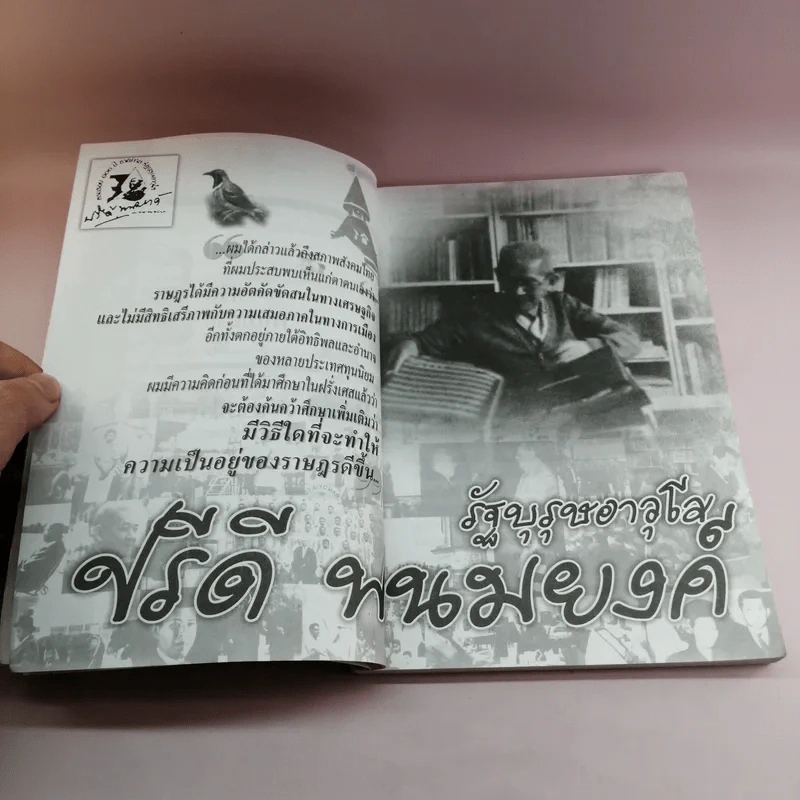 ...ผมได้กล่าวแล้วถึงสภาพสังคมไทย
ที่ผมประสบพบเห็นแก่ตาตนเองว่า
ราษฎรได้มีความอัตคัดขัดสนในทางเศรษฐกิจ
และไม่มีสิทธิเสรีภาพกับความเสมอภาคในทางการเมือง
อีกทั้งตกอยู่ภายใต้อิทธิพลและอำนาจ
ของหลายประเทศทุนนิยม
ผมมีความคิดก่อนที่ได้มาศึกษาในฝรั่งเศสแล้วว่า
จะต้องค้นคว้าศึกษาเพิ่มเติมว่า
มีวิธีใดที่จะทำให้
ความเป็นอยู่ของราษฎรดีขึ้น...
รัฐบุรุษอาวุโส
ปรีดี พนมยงค์